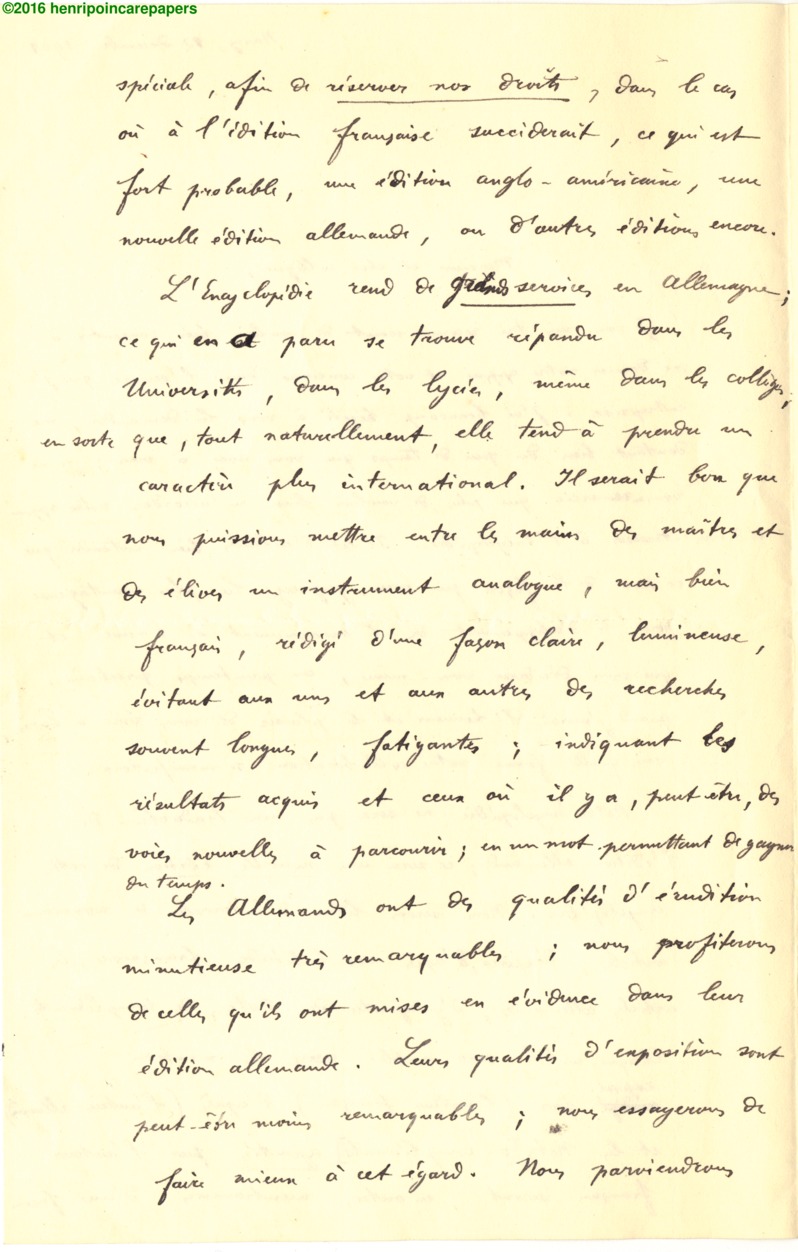 ©2016 henripoincarepapers
spéciale, afin de réserver nos droits, dans le cas
où à l'édition française succèderait, ce qui est
fort probable, une édition anglo-américaine, une
nouvelle édition allemande, ou d'autres éditions encore.
L'Encyclopédie rend de grands services en Allemagne ;
ce qui en a paru se trouve répandu dans les
Universités, dans les lycées, même dans les collèges,
en sorte que, tout naturellement, elle tend à prendre un
caractère plus international. Il serait bon que
nous puissions mettre entre les mains des maîtres et
des élèves un instrument analogue, mais bien
français, rédigé d'une façon claire, lumineuse,
évitant aux uns et aux autres des recherches
souvent longues, fatigantes ; indiquant les
résultats acquis et ceux où il y a, peut-être, des
voies nouvelles à parcourir ; en un mot permettant de gagner
du temps.
Les Allemands ont des qualités d'érudition
minutieuse très remarquables ; nous profiterons
de celles qu'ils ont mises en évidence dans leur
édition allemande. Leurs qualités d'exposition sont
peut-être moins remarquables ; nous essayerons de
faire mieux à cet égard. Nous parviendrons